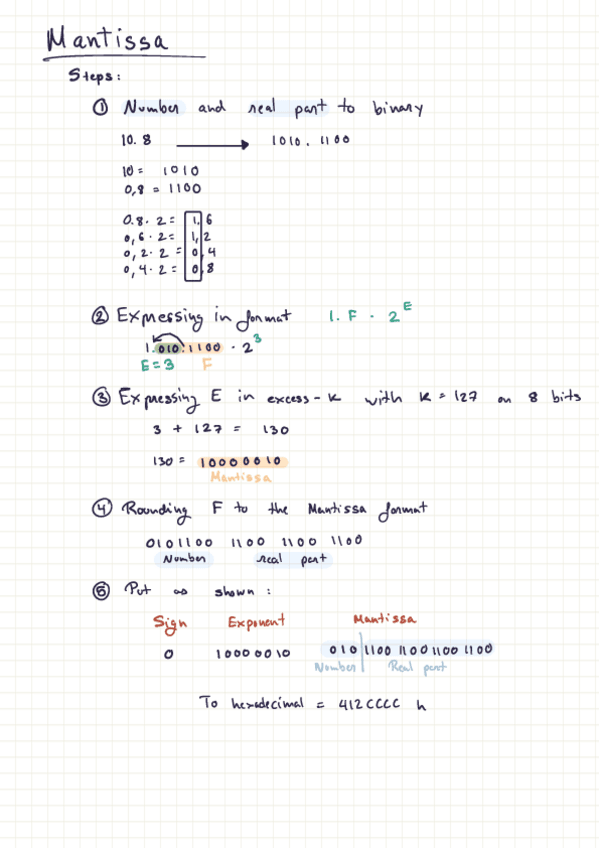 Mantissa
Steps:
① Number and real part to binary
10.8 → 1010.1100
10= 1010
0,8 = 1100
0.8·2= 1,6
0,6·2= 1,2
0,2·2= 0,4
0,4·2= 0,8
② Expressing in format 1.F·2^E
1.010:1100·2^3
E=3 F
③ Expressing E in excess-k with K=127 on 8 bits
3 + 127 = 130
130 = 10000010
Mantissa
④ Rounding F to the Mantissa format
0101100 1100 1100 1100
Number real part
⑤ Put as shown:
Sign Exponent Mantissa
0 10000010 010|1100 1100 1100 1100
Number Real part
To hexadecimal = 412CCCC h